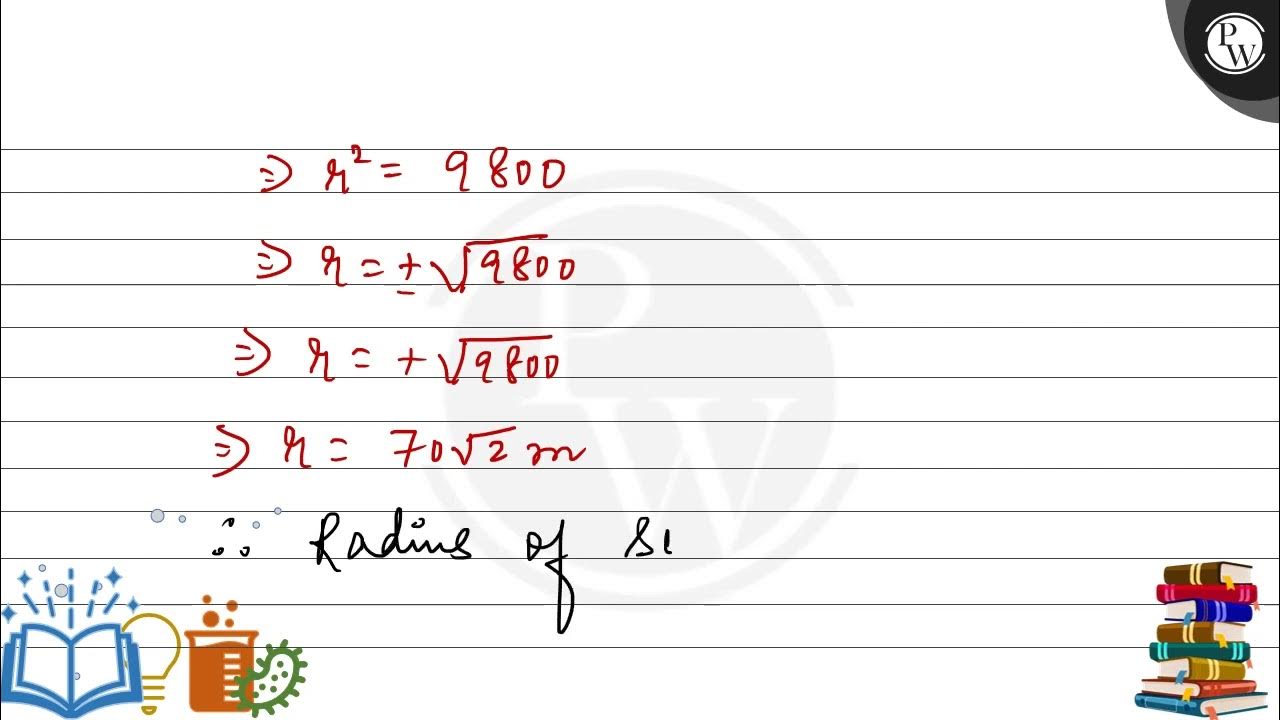 PW
⇒ r² = 9800
⇒ r = ± √9800
⇒ r = + √9800
⇒ r = 70√2 m
∴ Radius of se
PW